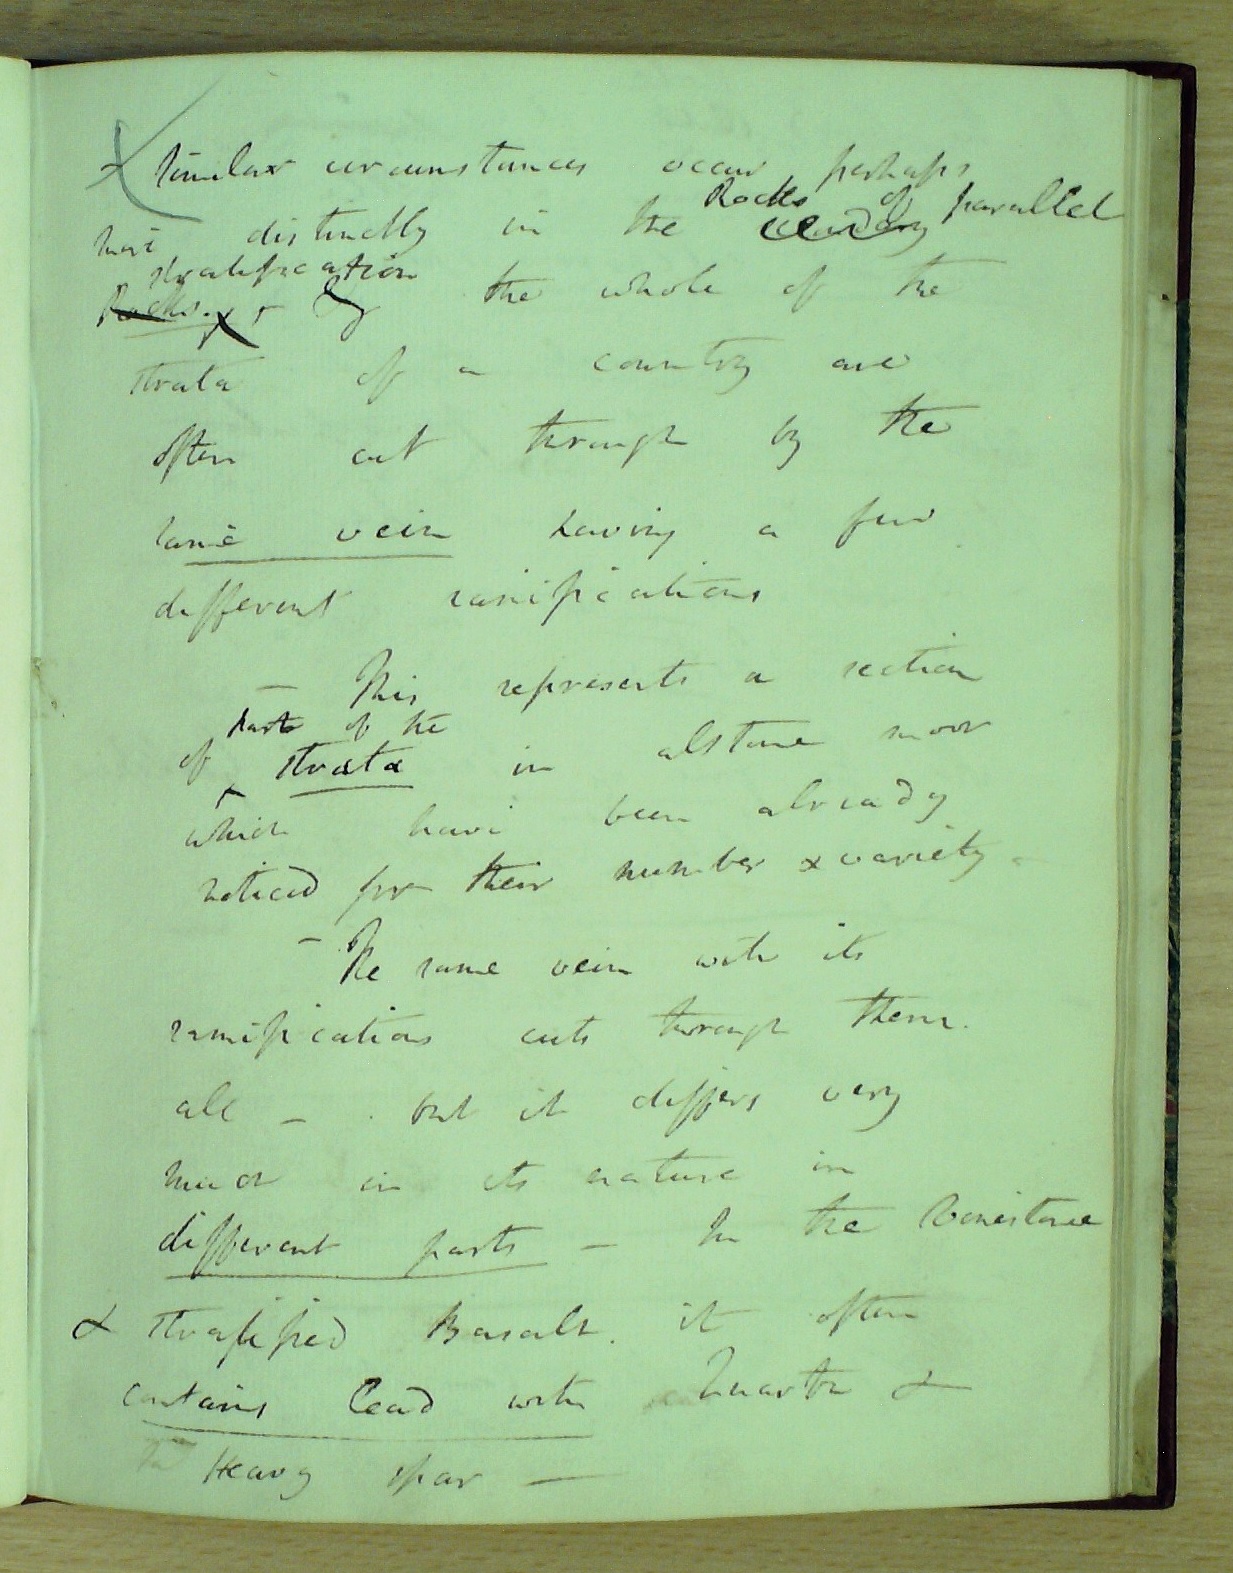 Similar circumstances occur perhaps
Rocks of parallel
more distinctly in the
stratification
Rocks. + by the whole of the
strata of a country are
often cut through by the
same vein having a few
different ramifications
— This represents a section
part of the
of strata in alstone moor
which have been already
noticed for their number & variety
— The same vein with its
ramifications cuts through them
all — but it differs very
much in its nature in
different parts — In the limestone
& stratified Basalt. it often
contains lead with Quartz &
Heavy spar —